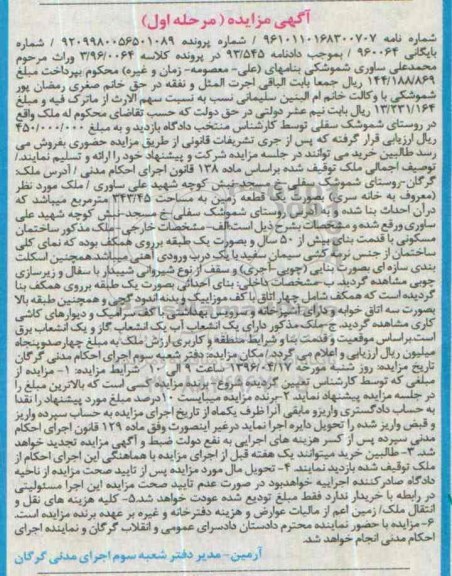 آگهی مزایده (مرحله اول)
شماره نامه ۹۶۱۰۱۱۰۱۶۸۳۰۰۷۰۷ / شماره پرونده ۹۲۰۹۹۸۰۰۵۶۵۰۱۰۸۹ / شماره
بایگانی ۹۶۰۰۶۴ / بموجب دادنامه ۹۳/۵۴۵ در پرونده کلاسه ۳/۹۶/۰۰۶۴ وراث مرحوم
محمدعلی ساوری شموشکی بنامهای (علی- معصومه- زمان و غیره) محکوم بپرداخت مبلغ
۱۴۴/۱۸۸/۸۶۹ ریال جمعا بابت الباقی اجرت المثل و نفقه در حق خانم صغری رمضان پور
شموشکی با وکالت خانم ام البنین سلیمانی نسب به نسبت سهم الارث از ماترک فیه و مبلغ
۱۳/۲۳۱/۱۶۴ ریال بابت نیم عشر دولتی در حق دولت که حسب تقاضای محکوم له ملک واقع
در روستای شموشک سفلی توسط کارشناس منتخب دادگاه بازدید و به مبلغ ۴۵۰/۰۰۰/۰۰۰
ریال ارزیابی قرار گرفته که پس از جری تشریفات قانونی از طریق مزایده حضوری بفروش می
رسد طالبین خرید می توانند در جلسه مزایده شرکت و پیشنهاد خود را ارائه و تسلیم نمایند./
توصیف اجمالی ملک توقیف شده براساس ماده ۱۳۸ قانون اجرای احکام مدنی / آدرس ملک:
گرگان-روستای شموشک سفلی خ مسجد-نبش کوچه شهید علی ساوری / ملک مورد نظر
(معروف به خانه سری) بصورت یک قطعه زمین به مساحت ۳۴۳/۴۵ مترمربع میباشد که
درآن احداث بنا شده و به آدرس روستای شموشک سفلی خ مسجد-نبش کوچه شهید علی
ساوری ورقع شده و مشخصات بشرح ذیل است:الف-مشخصات خارجی: ملک مذکور ساختمان
مسکونی با قدمت بنای بیش از ۵۰ سال و بصورت یک طبقه برروی همکف بوده که نمای کلی
ساختمان از جنس نرمه کشی سیمان سفید با یک درب ورودی آهنی میباشد همچنین اسکلت
بندی سازه ای بصورت بنایی (چوبی-آجری) و سقف از نوع شیروانی شیبدار با سفال و زیرسازی
چوبی مشاهده گردید. ب- مشخصات داخلی: بنای احداثی بصورت یک طبقه برروی همکف بنا
گردیده است که همکف شامل چهار اتاق با کف موزاییک و بدنه اندود گچی و همچنین طبقه بالا
بصورت سه اتاق خوابه و دارای آشپزخانه و سرویس بهداشتی با کف سرامیک و دیوارهای کاشی
کاری مشاهده گردید. ج-ملک مذکور دارای یک انشعاب آب یک انشعاب گاز و یک انشعاب برق
است براساس موقعیت و قدمت بنا و شرایط منطقه و کاربری ارزش ملک به مبلغ چهارصدوپنجاه
میلیون ریال ارزیابی و اعلام می گردد./ مکان مزایده: دفتر شعبه سوم اجرای احکام مدنی گرگان
تاریخ مزایده: روز شنبه مورخه ۱۳۹۶/۰۴/۱۷ ساعت ۹ الی ۱۰ شرایط مزایده: ۱- مزایده از
مبلغی که توسط کارشناس تعیین گردیده شروع- برنده مزایده کسی است که بالاترین مبلغ را
در جلسه مزایده پیشنهاد نماید. ۲-برنده مزایده میبایست ۱۰درصد مبلغ مورد پیشنهاد را نقدا
به حساب دادگستری واریز و مابقی آنرا ظرف یکماه از تاریخ اجرای مزایده به حساب سپرده واریز
و قبض واریز شده را تحویل دایره اجرا نماید درغیر اینصورت وفق ماده ۱۲۹ قانون اجرای احکام
مدنی سپرده پس از کسر هزینه های اجرایی به نفع دولت ضبط و آگهی مزایده تجدید خواهد
شد. ۳-طالبین خرید میتوانند یک هفته قبل از اجرای مزایده با هماهنگی این اجرای احکام از
ملک توقیف شده بازدید نمایند. ۴- تحویل مال مورد مزایده پس از تایید صحت مزایده از ناحیه
دادگاه صادرکننده اجراییه خواهدبود در صورت عدم تایید صحت مزایده این اجرا مسئولیتی
در رابطه با خریدار ندارد فقط مبلغ تودیع شده عودت خواهد شد.۵- کلیه هزینه های نقل و
انتقال ملک/ زمین اعم از مالیات عوارض و هزینه دفترخانه و غیره بر عهده برنده مزایده است.
۶-مزایده با حضور نماینده محترم دادستان دادسرای عمومی و انقلاب گرگان و نماینده اجرای
احکام مدنی انجام خواهد شد.
آرمین- مدیر دفتر شعبه سوم اجرای مدنی گرگان